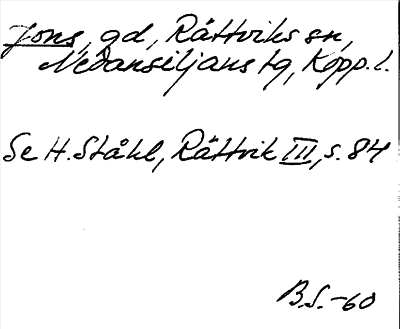 Jons, gd, Rättviks sn,
Nedansiljans tg, Kopp. l.
Se H. Ståhl, Rättvik III, s. 84
B.S. -60